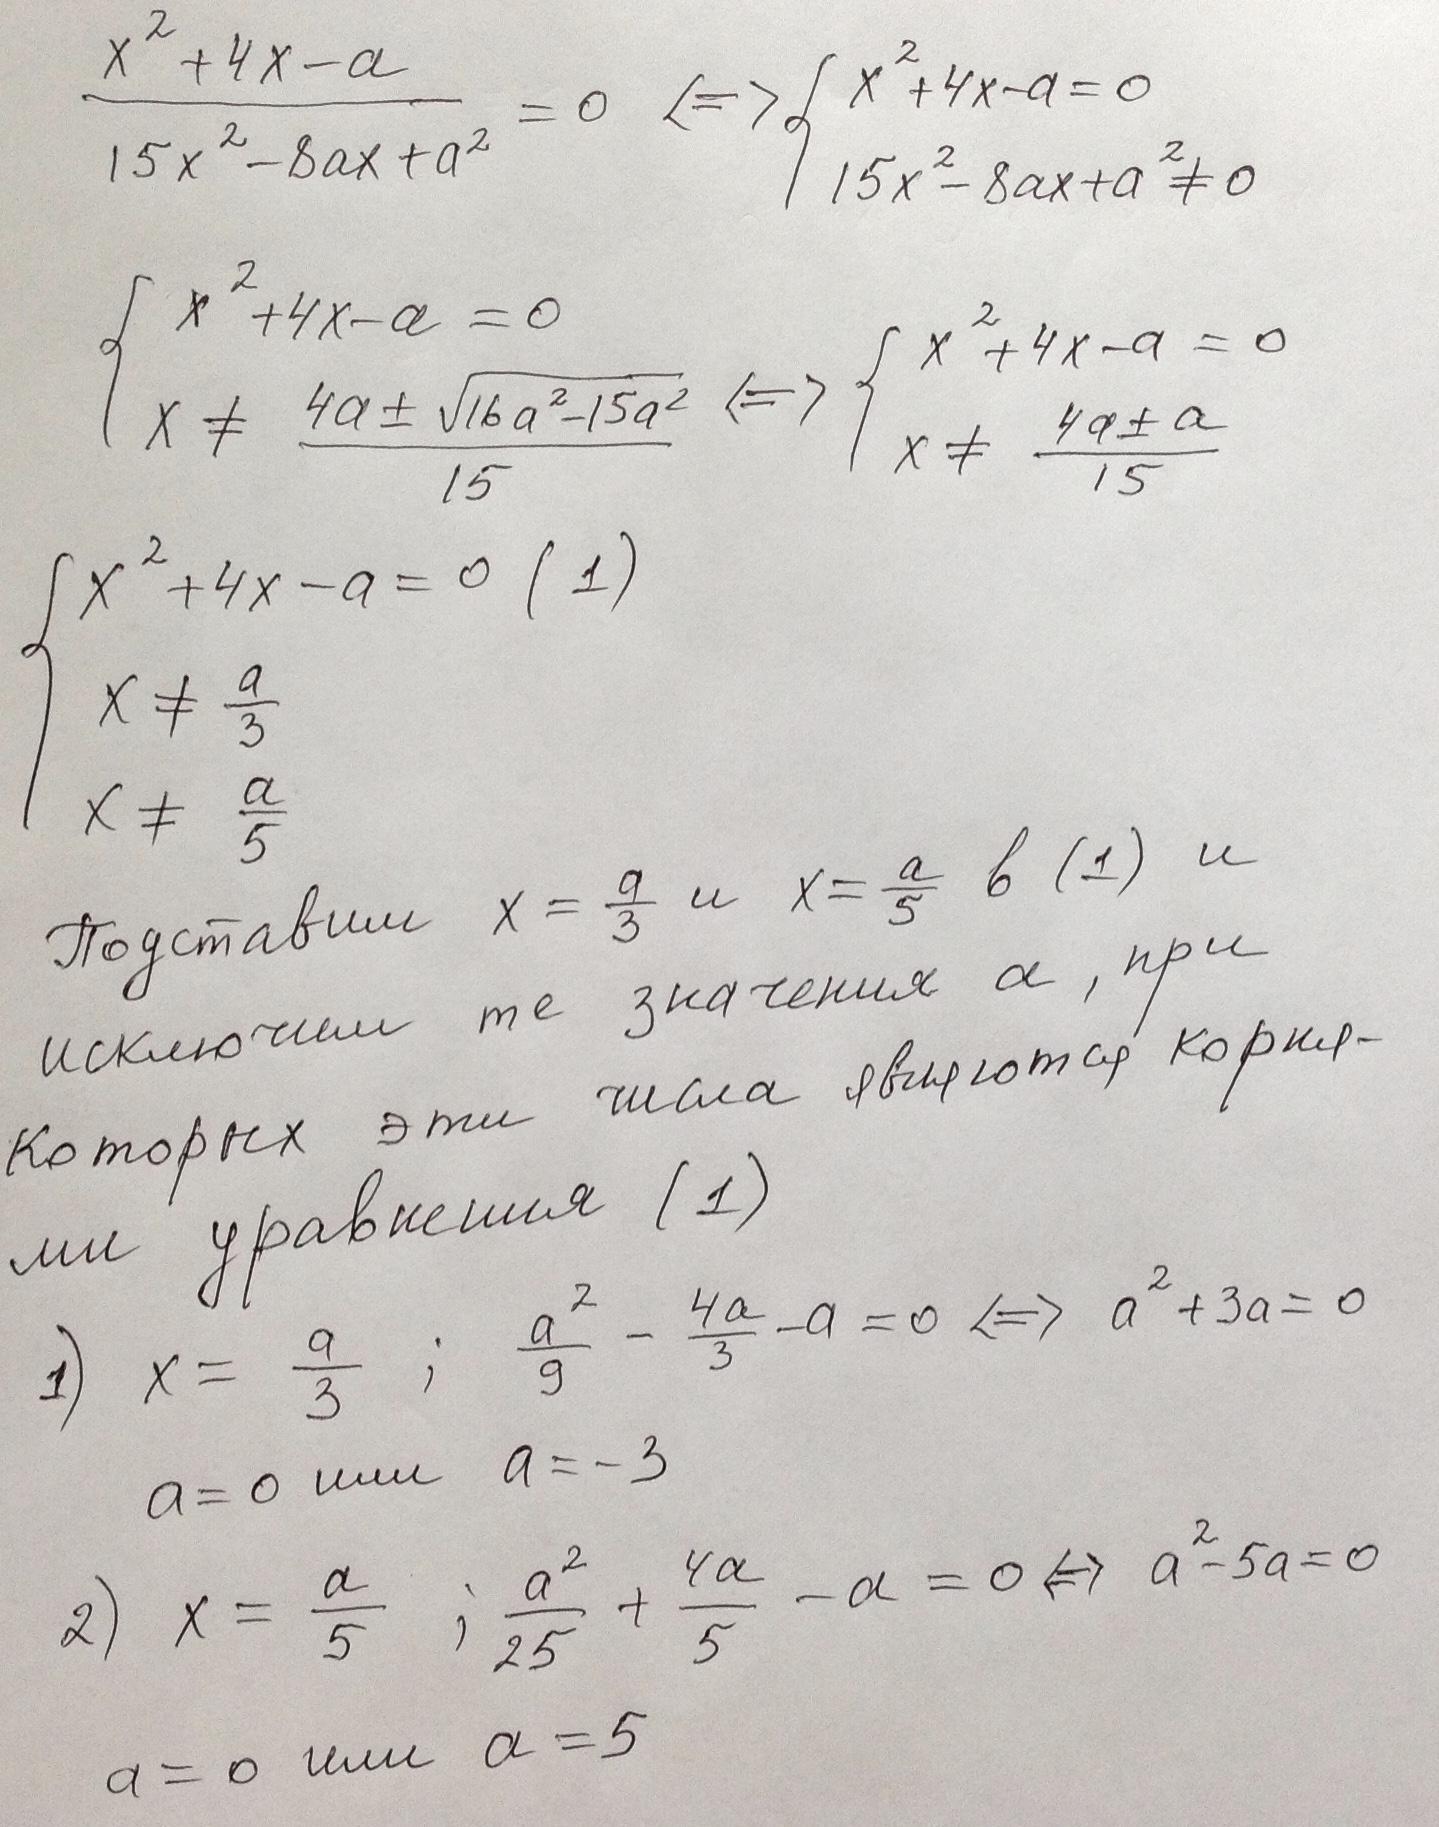 (x²+4x−a)/(15x²−8ax+a²) = 0 <=> { x²+4x−a=0
15x²−8ax+a²≠0
{ x²+4x−a=0
x ≠ (4a±√(16a²−15a²))/15 <=> { x²+4x−a=0
x ≠ (4a±a)/15
{ x²+4x−a=0 (1)
x ≠ a/3
x ≠ a/5
Подставим x = a/3 и x = a/5 в (1) и
исключим те значения a, при
которых эти числа являются корня-
ми уравнения (1)
1) x = a/3 ; a²/9 − 4a/3 − a = 0 <=> a²+3a=0
a=0 или a=−3
2) x = a/5 ; a²/25 + 4a/5 − a = 0 <=> a²−5a=0
a=0 или a=5